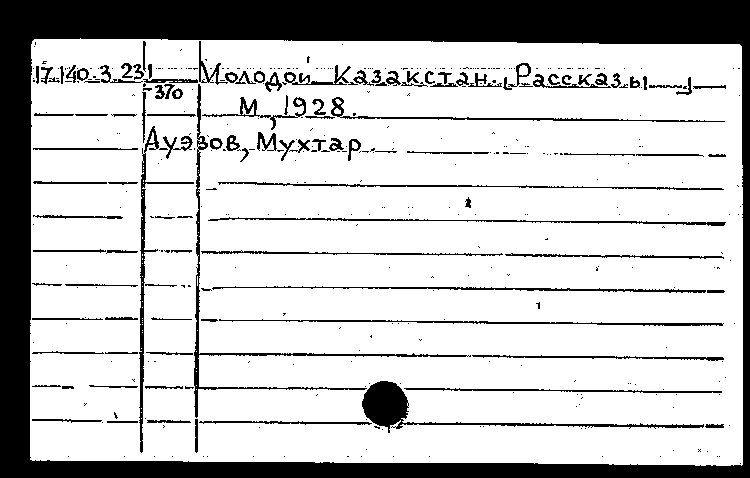 17.140.3.231 Молодой Казакстан. [Рассказы]
370
М, 1928.
Ауэзов, Мухтар.